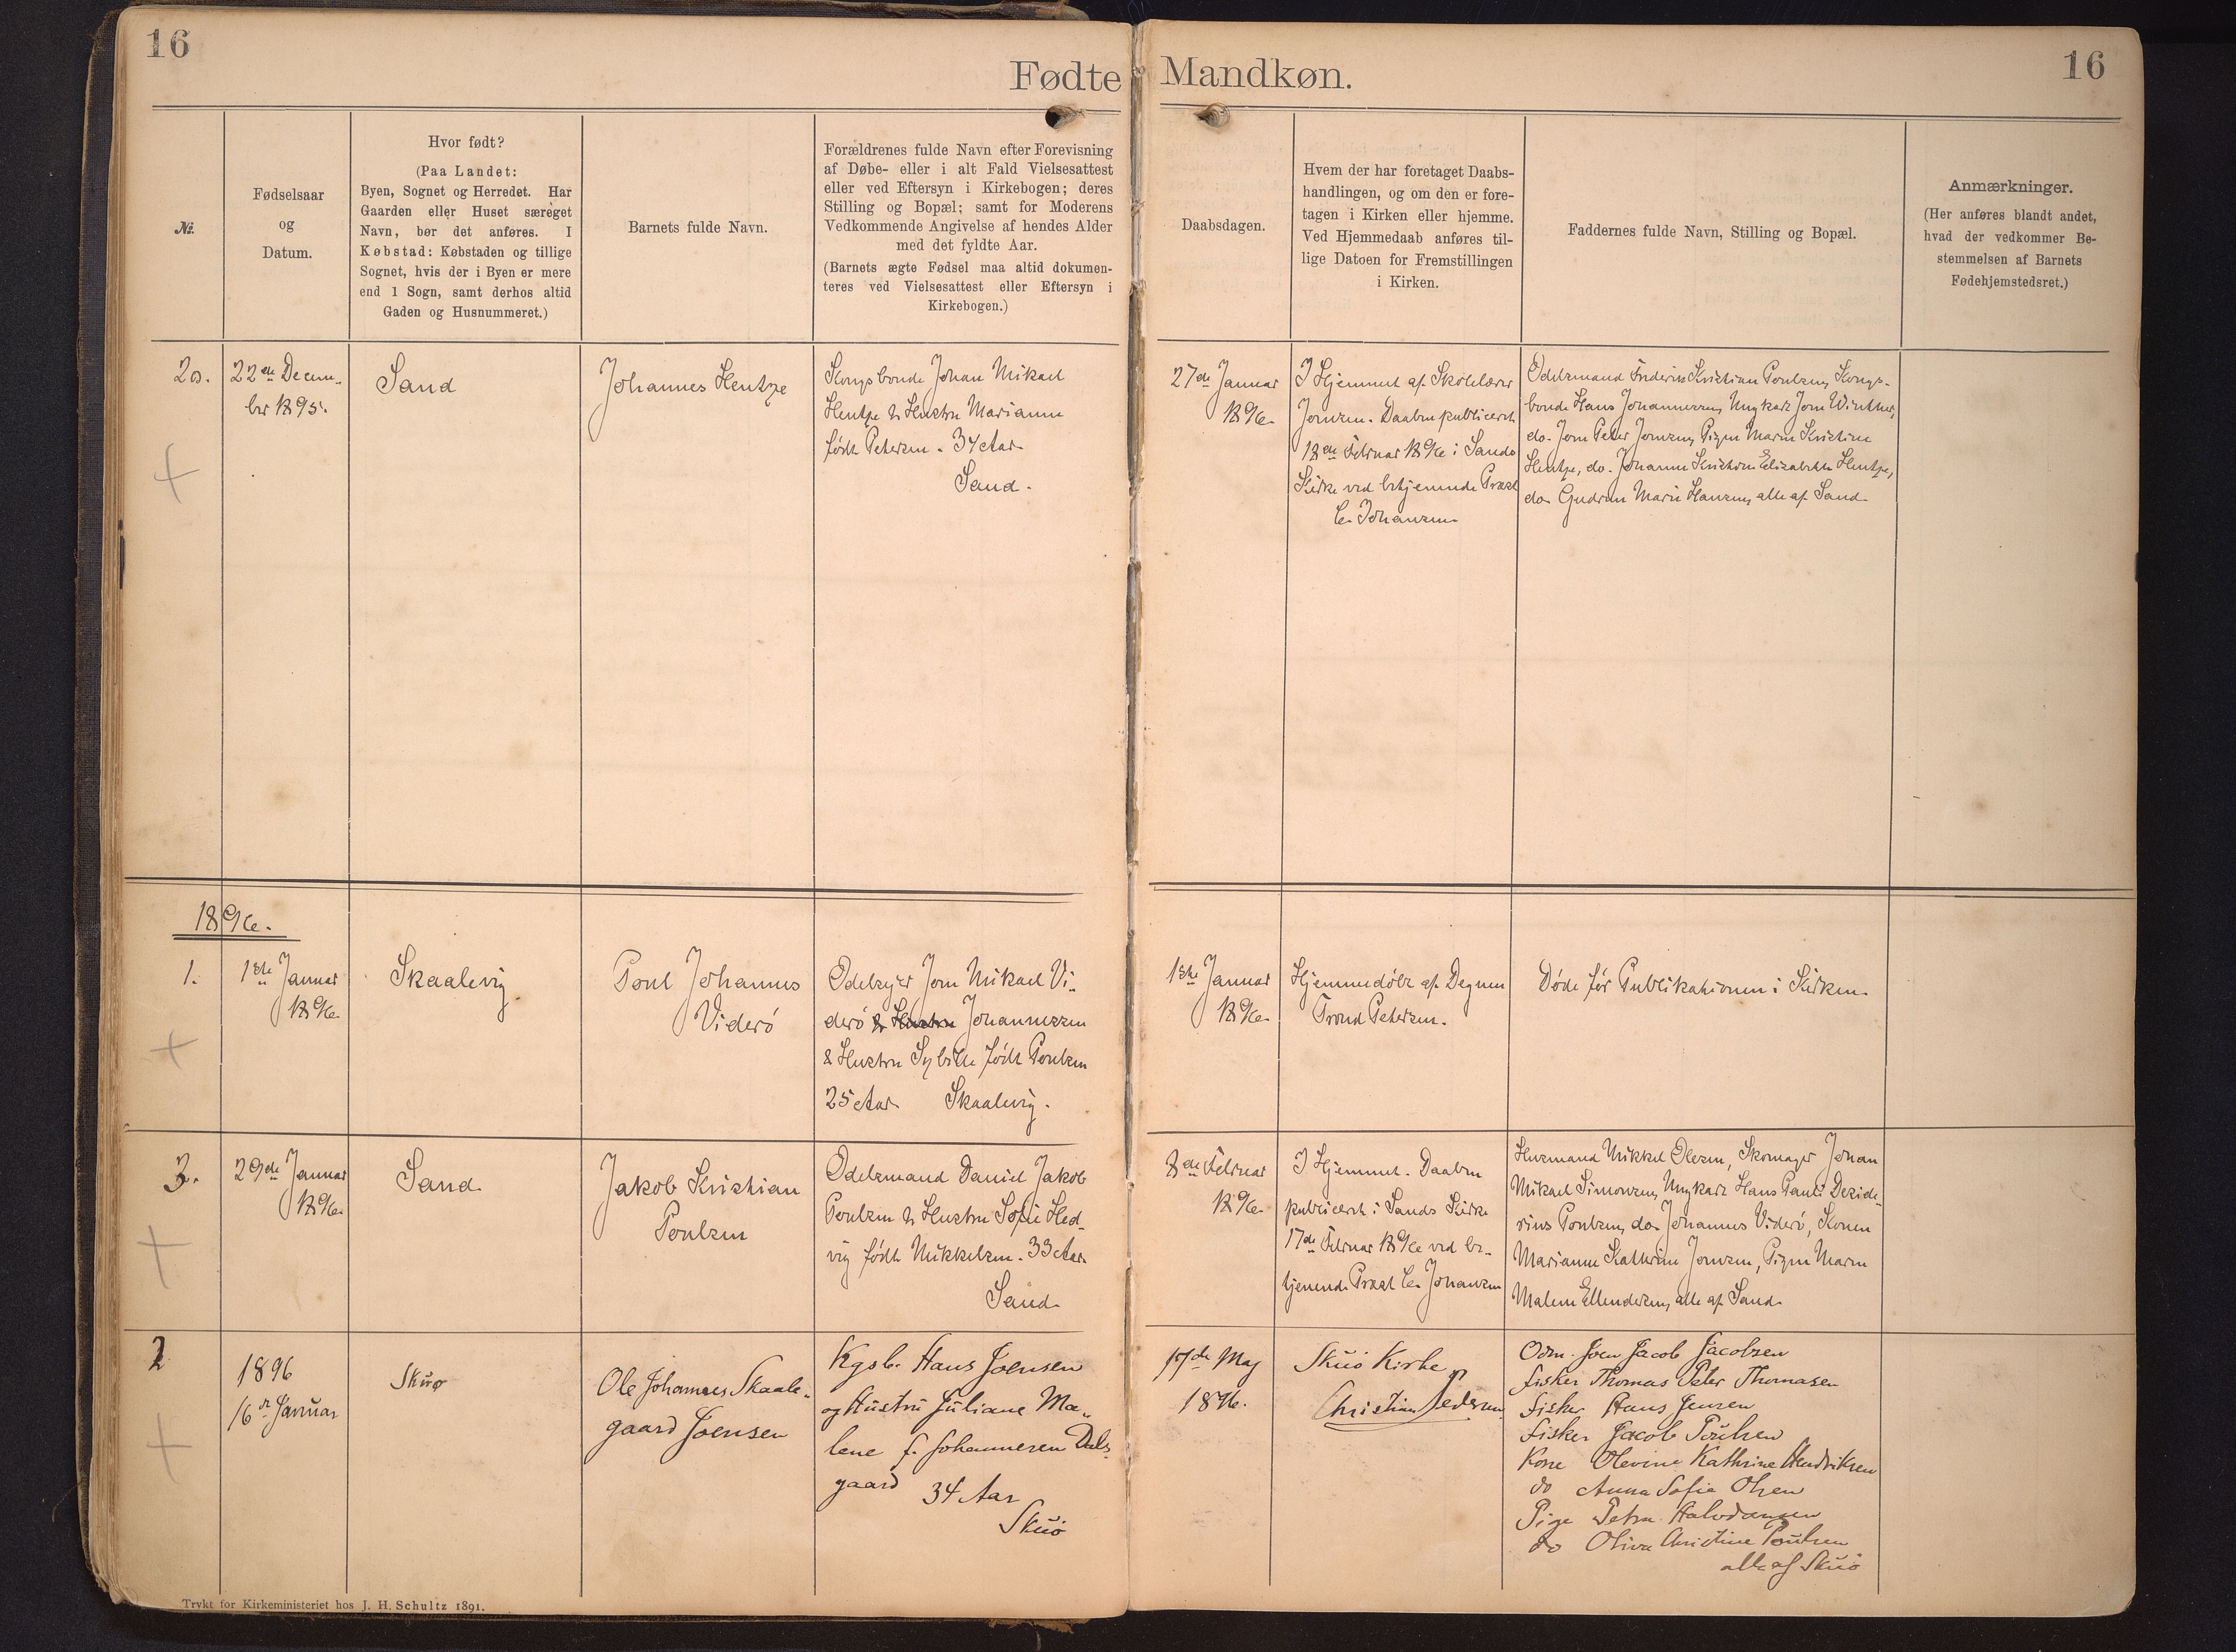 16
Fødte
Mandkøn.
16
№.
Fødselsaar
og
Datum.
Hvor født?
(Paa Landet:
Byen, Sognet og Herredet. Har
Gaarden eller Huset særeget
Navn, bør det anføres. I
Købstad: Købstaden og tillige
Sognet, hvis der i Byen er mere
end 1 Sogn, samt derhos altid
Gaden og Husnummeret.)
Barnets fulde Navn.
Forældrenes fulde Navn efter Forevisning
af Døbe- eller i alt Fald Vielsesattest
eller ved Eftersyn i Kirkebogen; deres
Stilling og Bopæl; samt for Moderens
Vedkommende Angivelse af hendes Alder
med det fyldte Aar.
(Barnets ægte Fødsel maa altid dokumen-
teres ved Vielsesattest eller Eftersyn i
Kirkebogen.)
Daabsdagen.
Hvem der har foretaget Daabs-
handlingen, og om den er fore-
tagen i Kirken eller hjemme.
Ved Hjemmedaab anføres til-
lige Datoen for Fremstillingen
i Kirken.
Faddernes fulde Navn, Stilling og Bopæl.
Anmærkninger.
(Her anføres blandt andet,
hvad der vedkommer Be-
stemmelsen af Barnets
Fødehjemstedsret.)
22de Decem-
ber 1895.
Sand
Johannes Hentze
Kongsbonde Johan Mikael
Hentze & Hustru Marianne
født Petersen. 34 Aar
Sand.
27de Januar
1896.
I Hjemmet af Skolelærer
Joensen. Daaben publiceret
12de Februar 1896 i Sands
Kirke ved betjenende Præst
C. Johansen
Odelsmand Frederik Kristian Poulsen, Kongs-
bonde Hans Johannesen, Ungkarl Joen Winther,
do. Joen Peter Joensen, Pigen Maren Kristine
Hentze, do. Johanne Kristine Elisabeth Hentze,
do. Gudrun Marie Hansen, alle af Sand.
1896.
1.
1ste Januar
1896.
Skaalevig
Poul Johannes
Viderö
Odelsejer Joen Mikael Vi-
derö & Hustru Johannessen
& Hustru Sybille født Poulsen
25 Aar Skaalevig.
1ste Januar
1896.
Hjemmedöbt af Degnen
Trond Petersen.
Døde før Publikationen i Kirken.
3.
29de Januar
1896.
Sand
Jakob Kristian
Poulsen
Odelsmand Daniel Jakob
Poulsen & Hustru Sofie Hed-
vig født Mikkelsen. 33 Aar.
Sand
8de Februar
1896.
I Hjemmet. Daaben
publiceret i Sands Kirke
17de Februar 1896 ved be-
tjenende Præst C. Johansen
Husmand Mikkel Olesen, Skomager Johan
Mikael Simonsen, Ungkarl Hans Pauli Deside-
rius Poulsen, do. Johannes Viderö, Konen
Marianne Kathrine Joensen, Pigen Maren
Malene Ellendersen, alle af Sand.
2
1896
16de Januar
Skuø
Ole Johannes Skaale-
gaard Joensen
Kgsb. Hans Joensen
og Hustru Juliane Ma-
lene f. Johannesen Dals-
gaard 34 Aar
Skuö
17de Maj
1896.
Skuö Kirke
Christian Pedersen
Odm. Joen Jacob Jacobsen
Fisker Thomas Peter Thomasen
Fisker Hans Jensen
Fisker Jacob Poulsen
Kone Olevine Kathrine Hendriksen
do Anna Sofie Olsen
Pige Petra Halvdansen
do Oliva Christine Poulsen
alle af Skuö
Trykt for Kirkeministeriet hos J. H. Schultz 1891.